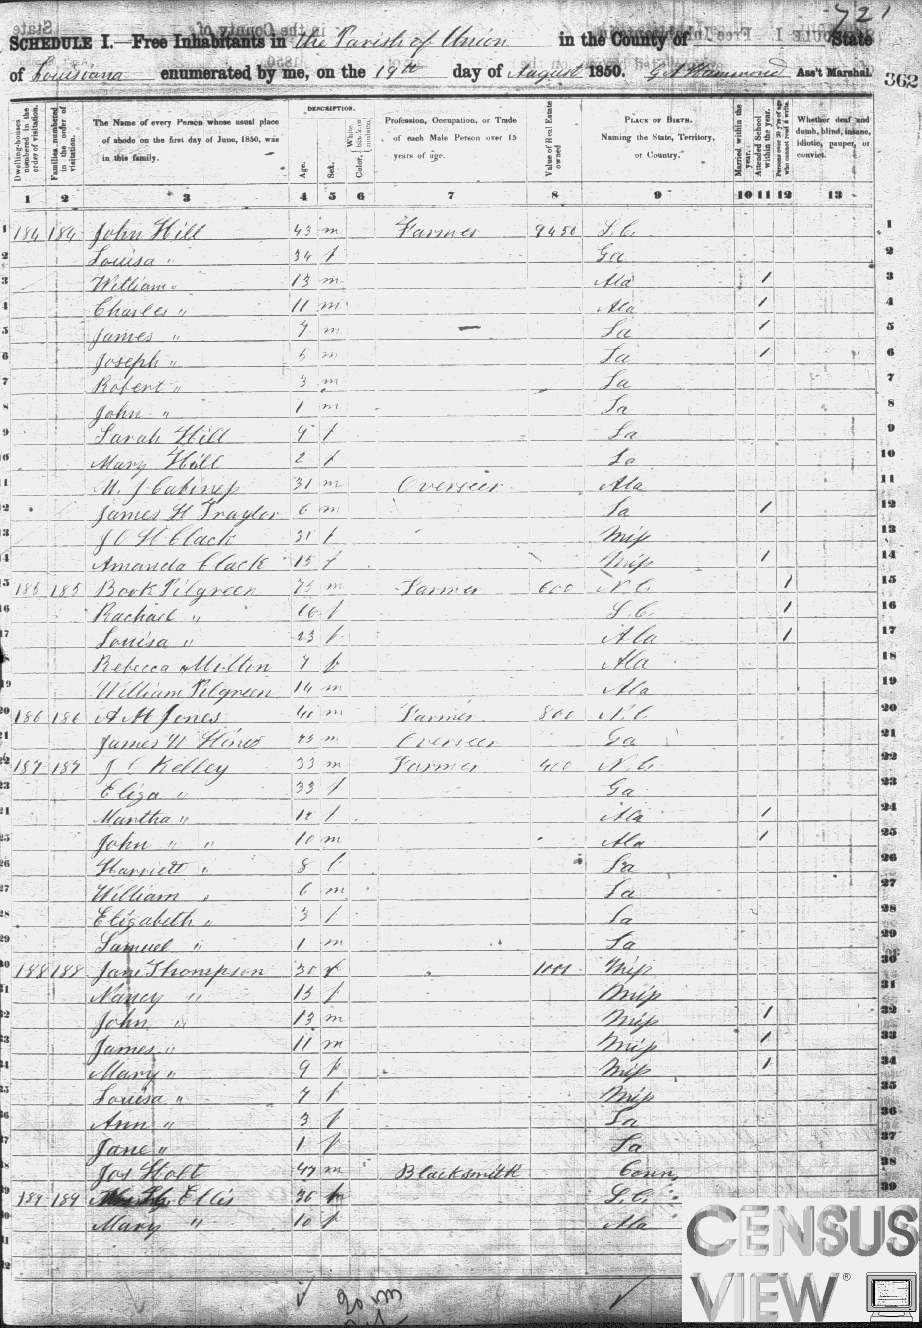 721
SCHEDULE I.—Free Inhabitants in The Parish of Union in the County of State
of Louisiana enumerated by me, on the 19th day of August 1850. Ass't Marshal. 362
Dwelling-houses numbered in the order of visitation. Families numbered in the order of visitation. The Name of every Person whose usual place of abode on the first day of June, 1850, was in this family. DESCRIPTION. Age. Sex. Color, White, black, or mulatto. Profession, Occupation, or Trade of each Male Person over 15 years of age. Value of Real Estate owned PLACE OF BIRTH. Naming the State, Territory, or Country. Married within the year. Attended School within the year. Persons over 20 y'rs of age who cannot read & write. Whether deaf and dumb, blind, insane, idiotic, pauper, or convict.
1 2 3 4 5 6 7 8 9 10 11 12 13
1 184 184 John Hill 43 m Farmer 9450 S.C. 1
2 Louisa " 34 f Ga 2
3 William " 13 m Ala 1 3
4 Charles " 11 m Ala 1 4
5 James " 7 m La 1 5
6 Joseph " 5 m La 1 6
7 Robert " 3 m La 7
8 John " 1 m La 8
9 Sarah Hill 9 f La 9
10 Mary Hill 2 f La 10
11 31 m Overseer Ala 11
12 James H Traylor 6 m La 1 12
13 J C H Clack 31 f Miss 13
14 Amanda Clack 15 f Miss 1 14
15 185 185 Book Pilgreen 75 m Farmer 600 N.C. 1 15
16 Rachael " f S.C. 1 16
17 Louisa " 23 f Ala 1 17
18 Rebecca 7 f Ala 18
19 William Pilgreen 14 m Ala 19
20 186 186 A M Jones 40 m Farmer 800 N.C. 20
21 James W Hines m Overseer Ga 21
22 187 187 J C Kelley 33 m Farmer 400 N.C. 22
23 Eliza " 33 f Ga 23
24 Martha " 12 f Ala 1 24
25 John " " 10 m Ala 1 25
26 Harriett " 8 f La 26
27 William " 6 m La 27
28 Elizabeth " 3 f La 28
29 Samuel " 1 m La 29
30 188 188 Jane Thompson 30 f 1000 Miss 30
31 Nancy " 15 f Miss 31
32 John " 13 m Miss 1 32
33 James " 11 m Miss 1 33
34 Mary " 9 f Miss 1 34
35 Louisa " 7 f Miss 35
36 Ann " 3 f La 36
37 Jane " 1 f La 37
38 Jos Holt 47 m Blacksmith Conn. 38
39 189 189 Ellis 36 f S.C. 39
40 Mary " 10 f Ala
41
42
20 m
CENSUS
VIEW®